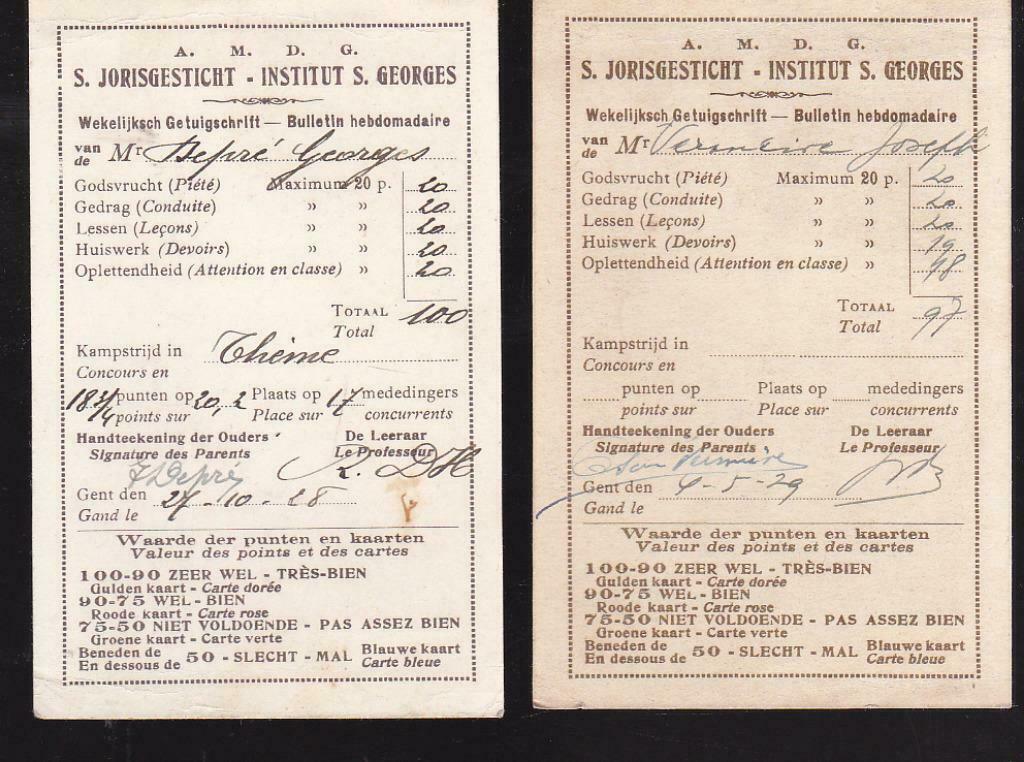 A. M. D. G.
S. JORISGESTICHT - INSTITUT S. GEORGES
Wekelijksch Getuigschrift — Bulletin hebdomadaire
van de Mr Depré Georges
Godsvrucht (Piété) Maximum 20 p. 20
Gedrag (Conduite) » » 20
Lessen (Leçons) » » 20
Huiswerk (Devoirs) » » 20
Oplettendheid (Attention en classe) » 20
TOTAAL
Total 100
Kampstrijd in Thème
Concours en
18 3/4 punten op 20, 2 Plaats op 17 mededingers
points sur Place sur concurrents
Handteekening der Ouders De Leeraar
Signature des Parents Le Professeur
Depré R. DH
Gent den 27-10-28
Gand le
Waarde der punten en kaarten
Valeur des points et des cartes
100-90 ZEER WEL - TRÈS-BIEN
Gulden kaart - Carte dorée
90-75 WEL - BIEN
Roode kaart - Carte rose
75-50 NIET VOLDOENDE - PAS ASSEZ BIEN
Groene kaart - Carte verte
Beneden de 50 - SLECHT - MAL Blauwe kaart
En dessous de Carte bleue
A. M. D. G.
S. JORISGESTICHT - INSTITUT S. GEORGES
Wekelijksch Getuigschrift — Bulletin hebdomadaire
van de Mr Vermeire Joseph
Godsvrucht (Piété) Maximum 20 p. 20
Gedrag (Conduite) » » 20
Lessen (Leçons) » » 20
Huiswerk (Devoirs) » » 19
Oplettendheid (Attention en classe) » 18
TOTAAL
Total 97
Kampstrijd in
Concours en
punten op Plaats op mededingers
points sur Place sur concurrents
Handteekening der Ouders De Leeraar
Signature des Parents Le Professeur
Vermeire
Gent den 4-5-29
Gand le
Waarde der punten en kaarten
Valeur des points et des cartes
100-90 ZEER WEL - TRÈS-BIEN
Gulden kaart - Carte dorée
90-75 WEL - BIEN
Roode kaart - Carte rose
75-50 NIET VOLDOENDE - PAS ASSEZ BIEN
Groene kaart - Carte verte
Beneden de 50 - SLECHT - MAL Blauwe kaart
En dessous de Carte bleue